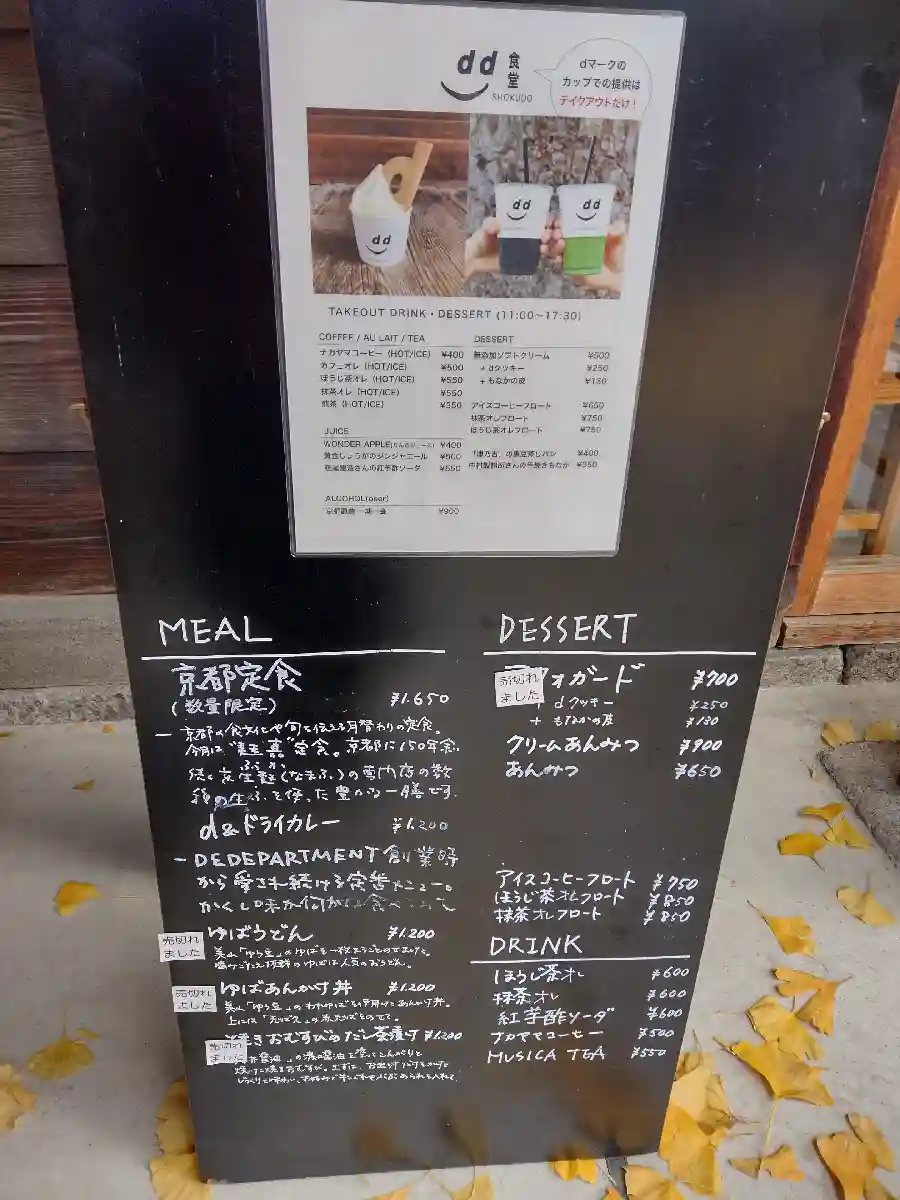 dd 食堂
SHOKUDO
dマークの
カップでの提供は
テイクアウトだけ!
dd
dd
dd
TAKEOUT DRINK・DESSERT (11:00〜17:30)
COFFEE / AU LAIT / TEA
ナカヤマコーヒー (HOT/ICE) ¥400
カフェオレ (HOT/ICE) ¥500
ほうじ茶オレ (HOT/ICE) ¥550
抹茶オレ (HOT/ICE) ¥550
煎茶 (HOT/ICE) ¥350
JUICE
WONDER APPLE(りんごジュース) ¥400
黄金しょうがのジンジャエール ¥500
飯尾醸造さんの紅芋酢ソーダ ¥550
ALCOHOL(beer)
京都醸造 一期一会 ¥900
DESSERT
無添加ソフトクリーム ¥500
+ dクッキー ¥250
+ もなかの皮 ¥130
アイスコーヒーフロート ¥650
抹茶オレフロート ¥750
ほうじ茶オレフロート ¥750
「津乃吉」の黒豆蒸しパン ¥400
中村製餡所さんの手焼きもなか ¥350
MEAL
京都定食
(数量限定) ¥1.650
京都の食文化や旬を伝える月替わりの定食。
今月は 定食。京都に150年余
続く 生麩(なまふ)の専門店の数
種の生ふを使った豊かな一膳です.
d&ドライカレー ¥1.200
DEDEPARTMENT創業時
から愛され続ける定番メニュー。
かくし味が何かは食べてみて
売切れ
ました
ゆばうどん ¥1.200
美山「ゆう豆」のゆばを
売切れ
ました
ゆばあんかけ丼 ¥1.200
美山「ゆう豆」の
売切れ
ました
焼きおむすびのだし茶漬け ¥1200
DESSERT
売切れ
ました
ォガード ¥700
+ dクッキー ¥250
+ もなかの皮 ¥130
クリームあんみつ ¥900
あんみつ ¥650
アイスコーヒーフロート ¥750
ほうじ茶オレフロート ¥850
抹茶オレフロート ¥850
DRINK
ほうじ茶オレ ¥600
抹茶オレ ¥600
紅芋酢ソーダ ¥600
ナカヤマコーヒー ¥500
MUSICA TEA ¥550